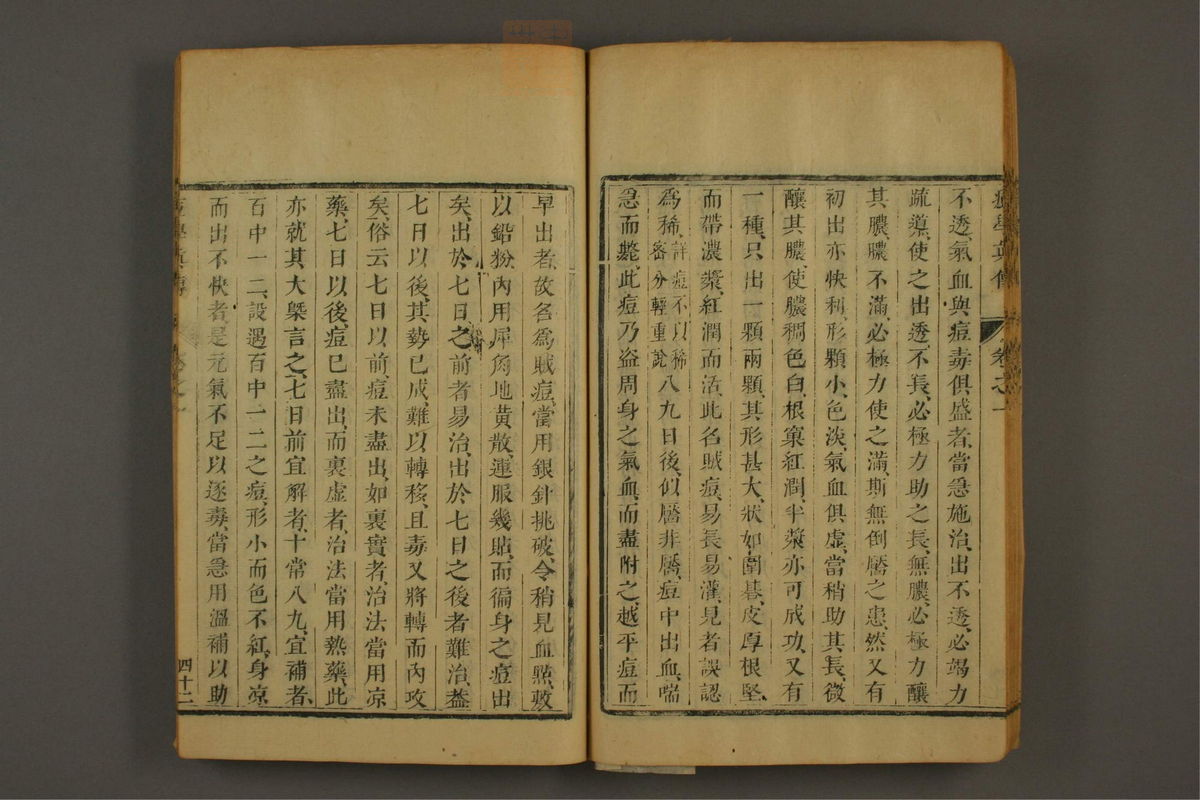 痘學真傳　卷之一
不透、氣血與痘毒俱盛者、當急施治、出不透、必竭力
疏導、使之出透、不長、必極力助之長、無膿、必極力釀
其膿、膿不滿、必極力使之滿、斯無倒靨之患、然又有
初出亦快利、形顆小、色淡、氣血俱虛、當稍助其長、微
釀其膿、使膿稠色白、根窠紅潤、半漿亦可成功、又有
一種、只出一顆兩顆、其形甚大、狀如圍碁、皮厚根堅、
而帶濃漿、紅潤而活、此名賊痘、易長易灌、見者誤認
為稀、詳痘不以稀密分輕重說八九日後、似靨非靨、痘中出血、喘
急而斃、此痘乃盜周身之氣血、而盡附之、越乎痘而
早出者、故名為賊痘、當用銀針挑破、令稍見血點、敷
以鉛粉、內用犀角地黃散、連服幾貼、而徧身之痘出
矣、出於七日之前者易治、出於七日之後者難治、蓋
七日以後、其勢已成、難以轉移、且毒又將轉而內攻
矣、俗云七日以前、痘未盡出、如裏實者、治法當用凉
藥、七日以後、痘已盡出、而裏虛者、治法當用熱藥、此
亦就其大槩言之、七日前宜解者、十常八九、宜補者、
百中一二、設遇百中一二之痘、形小而色不紅、身凉
而出不快者、是元氣不足以逐毒、當急用溫補以助
痘學真傳　卷之一　四十二